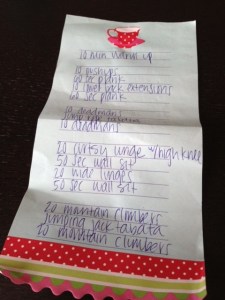 10 min. warm up
10 pushups
60 sec plank
10 lower back extensions
60 sec plank
10 deadmans
10 deadmans
20 curtsy lunge w/high knee
50 sec wall sit
20 wide lunges
50 sec wall sit
20 mountain climbers
jumping jack tabata
20 mountain climbers